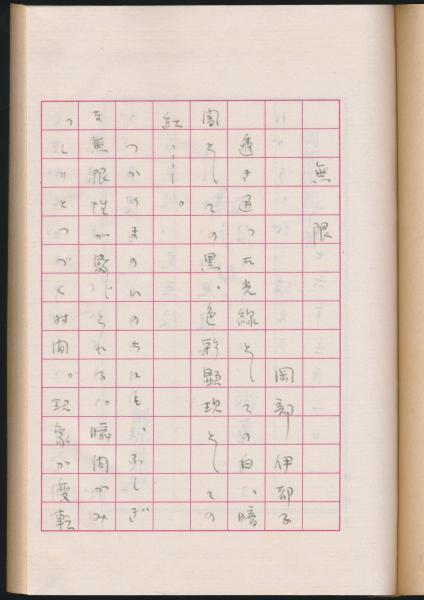 無限
岡部伊都子
透き通った光線としての白、暗
闇としての黒、色彩顕現としての
紅……。
つかのまのいのちにも、ふしぎ
な無限性が感じられる。瞬間がみ
っしりとつづく時間。現象が変転